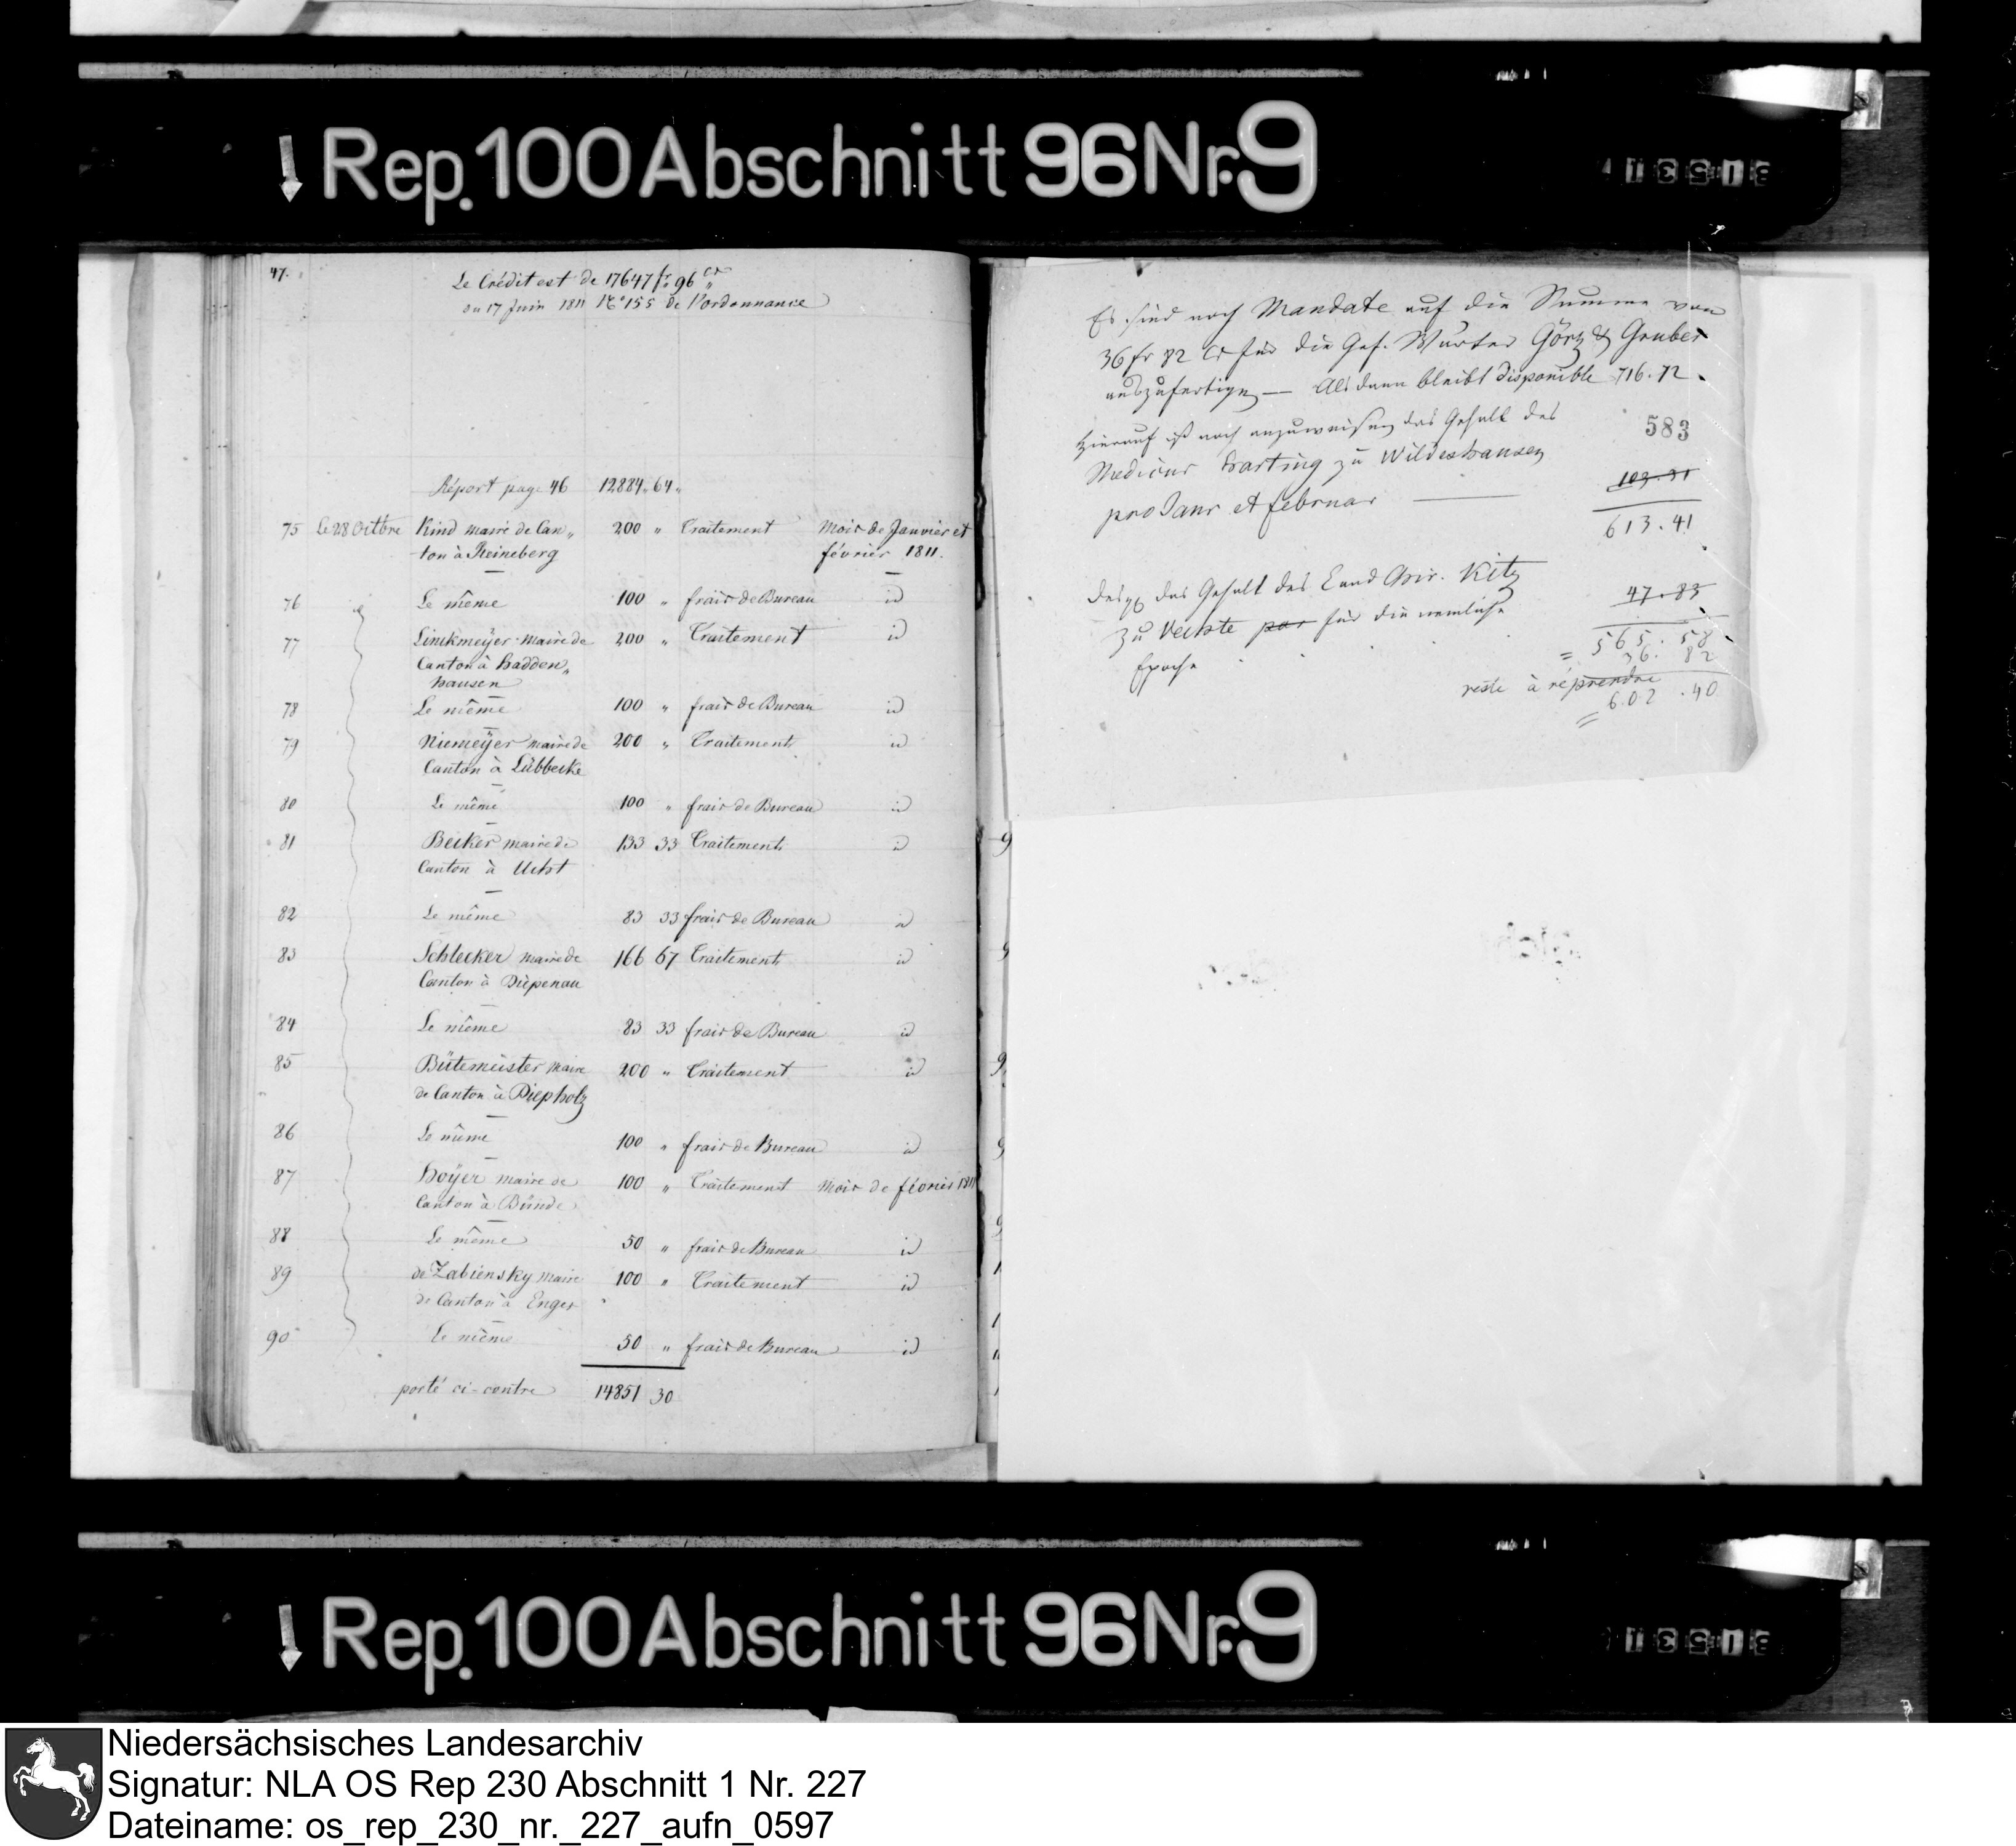 ↓ Rep. 100 Abschnitt 96 Nr. 9
47.
Le Crédit est de 17647 fr 96 Ct
du 17 Juin 1811 No 155 de l'ordonnance
Réport pag. 46 12884 „ 64 „
75 Le 28 Octbre Kind maire de Can„ 200 „ Traitement Mois de Janvier et
ton à Reineberg février 1811.
76 Le même 100 „ frais de Bureau id
77 Linckmeÿer maire de 200 „ Traitement id
Canton à Hadden„
hausen
78 Le même 100 „ frais de Bureau id
79 Niemeÿer maire de 200 „ Traitement id
Canton à Lübbecke
80 Le même 100 „ frais de Bureau id
81 Becker maire de 133 33 Traitement id
Canton à Ucht
82 Le même 83 33 frais de Bureau id
83 Schlecker maire de 166 67 Traitement id
Canton à Diepenau
84 Le même 83 33 frais de Bureau id
85 Bütemeister maire 200 „ Traitement id
de Canton à Diepholz
86 Le même 100 „ frais de Bureau id
87 Hoÿer maire de 100 „ Traitement Mois de février 1811
Canton à Bünde
88 Le même 50 „ frais de Bureau id
89 de Zabiensky maire 100 „ Traitement id
de Canton à Enger
90 Le même 50 „ frais de Bureau id
porté ci-contre 14851 30
Es sind noch Mandate auf die Summe von
36 fr 82 Ct für die Gef. Wärter Görtz & Gruber
auszufertigen — Alsdann bleibt disponible 716.72.
583
Hierauf ist noch anzuweisen das Gehalt des
Medicus Harting zu Wildeshausen
pro Janr et februar — 103.31
613.41
das Gehalt des Land Chir. Kitz
zu Vechte par für die nemliche 47.83
Epoche
= 565.58
36.82
reste à réprendre
= 602.40
↓ Rep. 100 Abschnitt 96 Nr. 9
Niedersächsisches Landesarchiv
Signatur: NLA OS Rep 230 Abschnitt 1 Nr. 227
Dateiname: os_rep_230_nr._227_aufn_0597